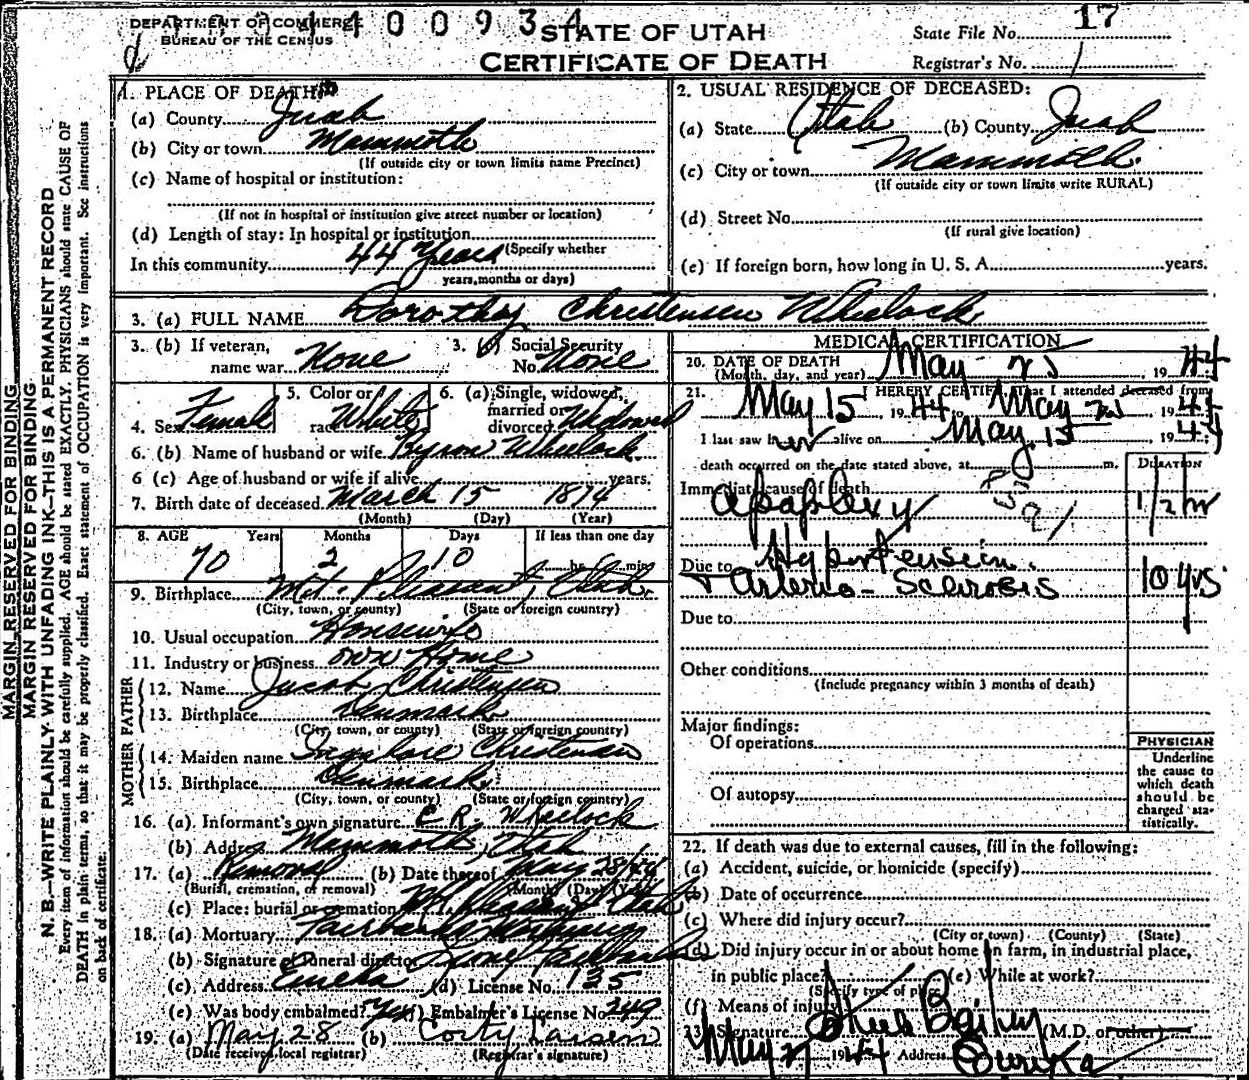 DEPARTMENT OF COMMERCE
BUREAU OF THE CENSUS
400934
STATE OF UTAH
CERTIFICATE OF DEATH
State File No. 17
Registrar's No. 1
MARGIN RESERVED FOR BINDING
MARGIN RESERVED FOR BINDING
N. B.—WRITE PLAINLY WITH UNFADING INK—THIS IS A PERMANENT RECORD
Every item of information should be carefully supplied. AGE should be stated EXACTLY. PHYSICIANS should state CAUSE OF
DEATH in plain terms, so that it may be properly classified. Exact statement of OCCUPATION is very important. See instructions
on back of certificate.
1. PLACE OF DEATH:
(a) County Juab
(b) City or town Mammoth
(If outside city or town limits name Precinct)
(c) Name of hospital or institution:
(If not in hospital or institution give street number or location)
(d) Length of stay: In hospital or institution
(Specify whether
In this community 44 Years
years, months or days)
2. USUAL RESIDENCE OF DECEASED:
(a) State Utah (b) County Juab
(c) City or town Mammoth
(If outside city or town limits write RURAL)
(d) Street No.
(If rural give location)
(e) If foreign born, how long in U. S. A. years.
3. (a) FULL NAME Dorothy Christensen Wheelock
3. (b) If veteran, name war None
3. (c) Social Security No. None
4. Sex Female
5. Color or race White
6. (a) Single, widowed, married or divorced Widowed
6. (b) Name of husband or wife Byron Wheelock
6 (c) Age of husband or wife if alive years.
7. Birth date of deceased March 15 1874
(Month) (Day) (Year)
8. AGE Years Months Days If less than one day
70 2 10 hr. min.
9. Birthplace Mt. Pleasant, Utah
(City, town, or county) (State or foreign country)
10. Usual occupation Housewife
11. Industry or business own Home
FATHER
12. Name Jacob Christensen
13. Birthplace Denmark
(City, town, or county) (State or foreign country)
MOTHER
14. Maiden name Christensen
15. Birthplace Denmark
(City, town, or county) (State or foreign country)
16. (a) Informant's own signature C R. Wheelock
(b) Address Mammoth, Utah
17. (a) Removal (b) Date thereof May 28/44
(Burial, cremation, or removal) (Month) (Day) (Year)
(c) Place: burial or cremation Mt. Pleasant Utah
18. (a) Mortuary Fairbanks Mortuary
(b) Signature of funeral director Fairbanks
(c) Address Eureka (d) License No. 135
(e) Was body embalmed? Yes (f) Embalmer's License No. 249
19. (a) May 28 (b) Larsen
(Date received local registrar) (Registrar's signature)
MEDICAL CERTIFICATION
20. DATE OF DEATH May 25 1944
(Month, day, and year)
21. I HEREBY CERTIFY that I attended deceased from
May 15 1944 to May 1944
I last saw her alive on May 15 1944
death occurred on the date stated above, at m.
DURATION
Immediate cause of death
apoplexy 1/2 hr
Due to Hypertension
+ Arterio-Sclerosis 10 yrs
Due to
Other conditions
(Include pregnancy within 3 months of death)
Major findings:
Of operations
Of autopsy
PHYSICIAN
Underline
the cause to
which death
should be
charged sta-
tistically.
22. If death was due to external causes, fill in the following:
(a) Accident, suicide, or homicide (specify)
(b) Date of occurrence
(c) Where did injury occur?
(City or town) (County) (State)
(d) Did injury occur in or about home in farm, in industrial place,
in public place? (e) While at work?
(Specify type of place)
(f) Means of injury
23. Signature (M.D. or other)
May 27 1944 Address Eureka